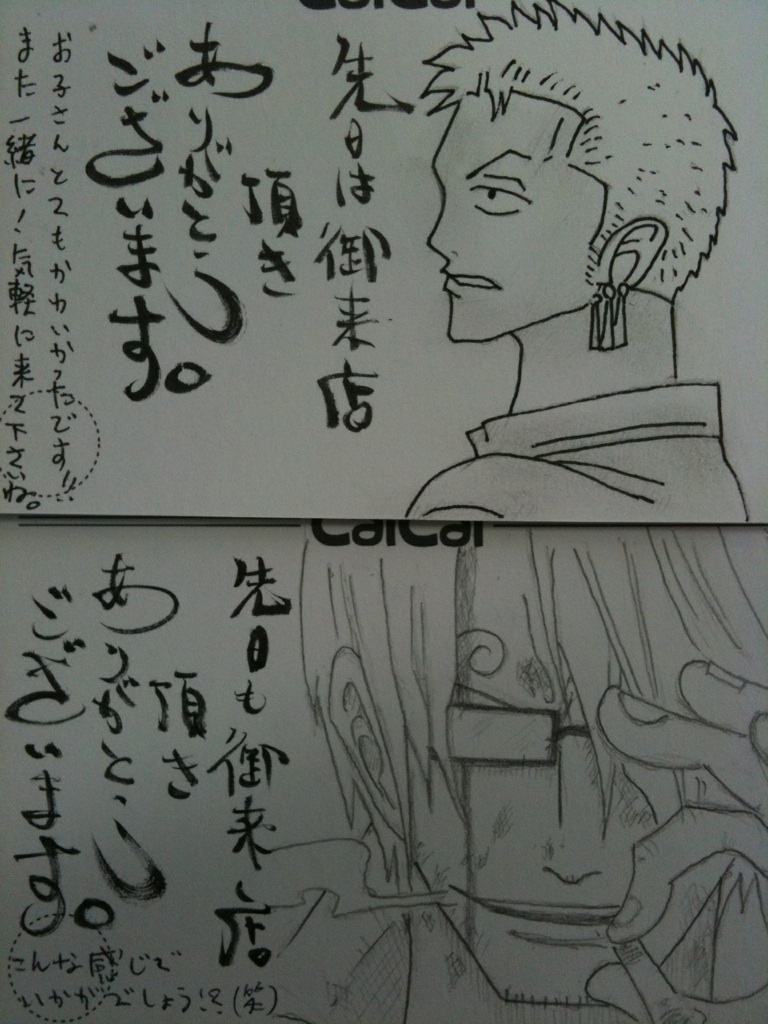 CalCal
先日は御来店
頂き
ありがとう
ございます。
お子さんとてもかわいかったです!!
また一緒に!気軽に来て下さいね。
CalCal
先日も御来店
頂き
ありがとう
ございます。
こんな感じで
いかがでしょう!?(笑)